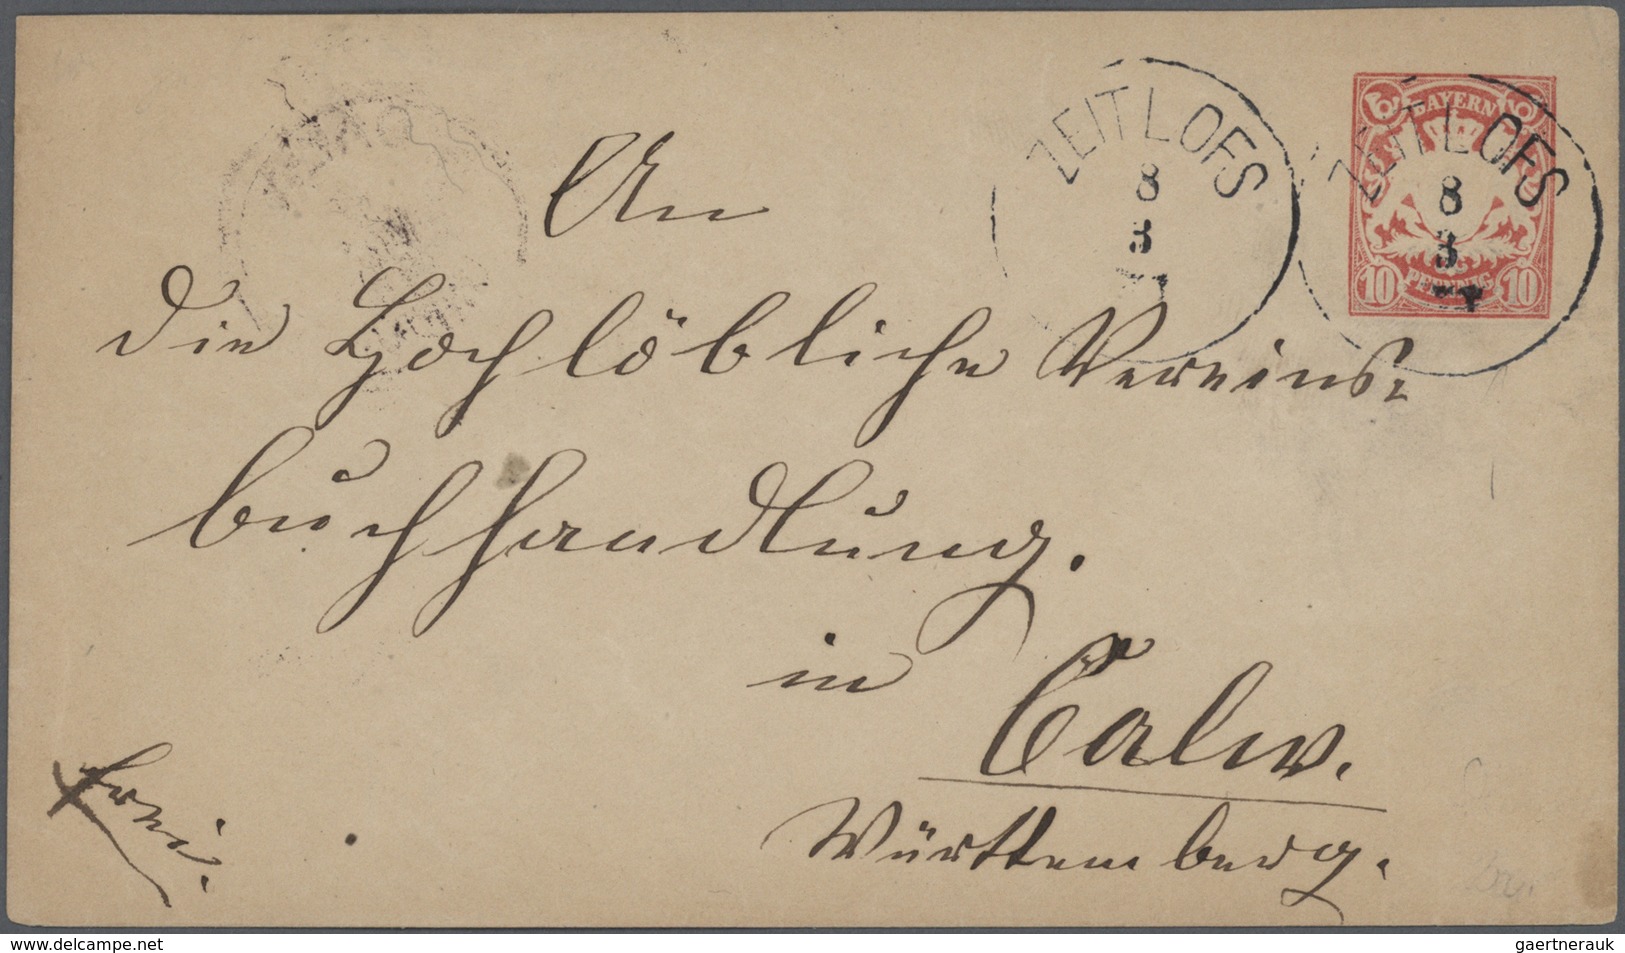 BAYERN
ZEITLOFS
8
3
ZEITLOFS
8
3
10 PFENNIG 10
An
die Hochlöbliche Vereins-
buchhandlung.
in Calw.
Württemberg.
frei.
www.delcampe.net
gaertnerauk